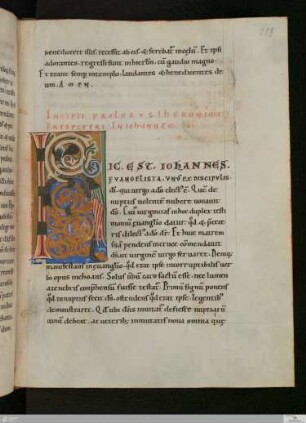 benediceret illis. recessit ab eis. & ferebat̄ in celū. Et ipsi
adorantes. regressi sunt in hierl̄m. cū gaudio magno
Et erant semp in templo. laudantes & benedicentes de
um. A M E N.
INCIPIT PROLOGVS. IHERONIMI
PRESBITERI. IN IOHANNEM.
HIC. EST. IOHANNES.
EVANGELISTA. VNVS EX DISCIPVLIS
dī. qui uirgo a dō elect᷒ ē. Quē de
nuptiis uolentē nubere uocauit
ds̄. Cui uirginitas in hoc duplex testi
moniū
Et huic matrem
suā pendens in cruce cōmendauit
ds̄. ut uirginē uirgo seruaret. Deniq;
manifestans in euangelio qd̄ erat ipse incorruptibilis uer
bi opus inchoans. Solus uerbū caro factū esse. nec lumen
a tenebris cōprehensū fuisse testat̄. Primū signū ponens
qd̄ in nuptiis fecit ds̄. ostendens qd̄ erat ipse. legentib᷒
demonstraret. Qd̄ ubi dn̄s inuitat᷒ deficere nuptiarū
uinū debeat. ac ueterib; inmutatis noua omnia que